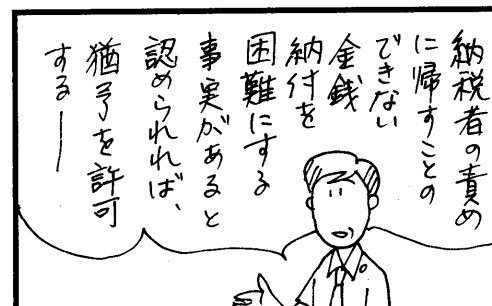 納税者の責め
に帰すことの
できない
金銭
納付を
困難にする
事実があると
認められれば、
猶予を許可
する―